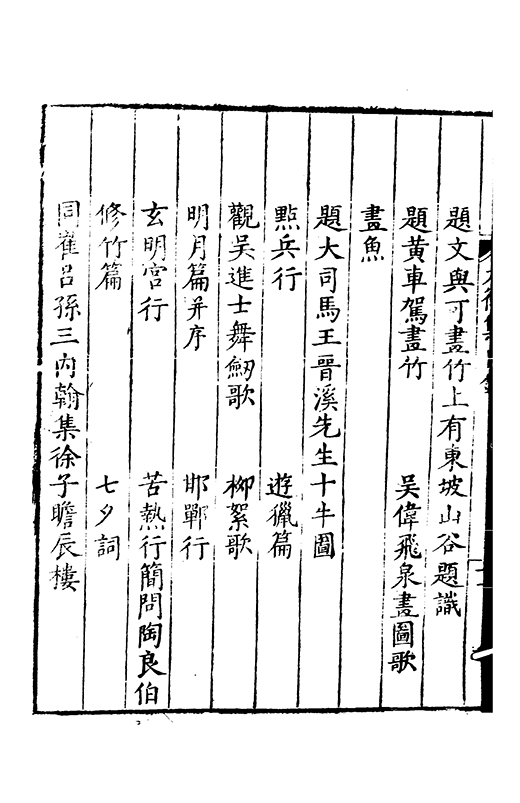 題文與可畫竹上有東坡山谷題識
題黄車駕畫竹　吴偉飛泉畫圖歌
畫魚
題大司馬王晉溪先生十牛圖
㸃兵行　遊獵篇
觀吴進士舞劒歌　柳絮歌
明月篇并序　邯鄲行
玄明宫行　苦熱行簡問陶良伯
修竹篇　七夕詞
同崔吕孫三内翰集徐子瞻辰樓